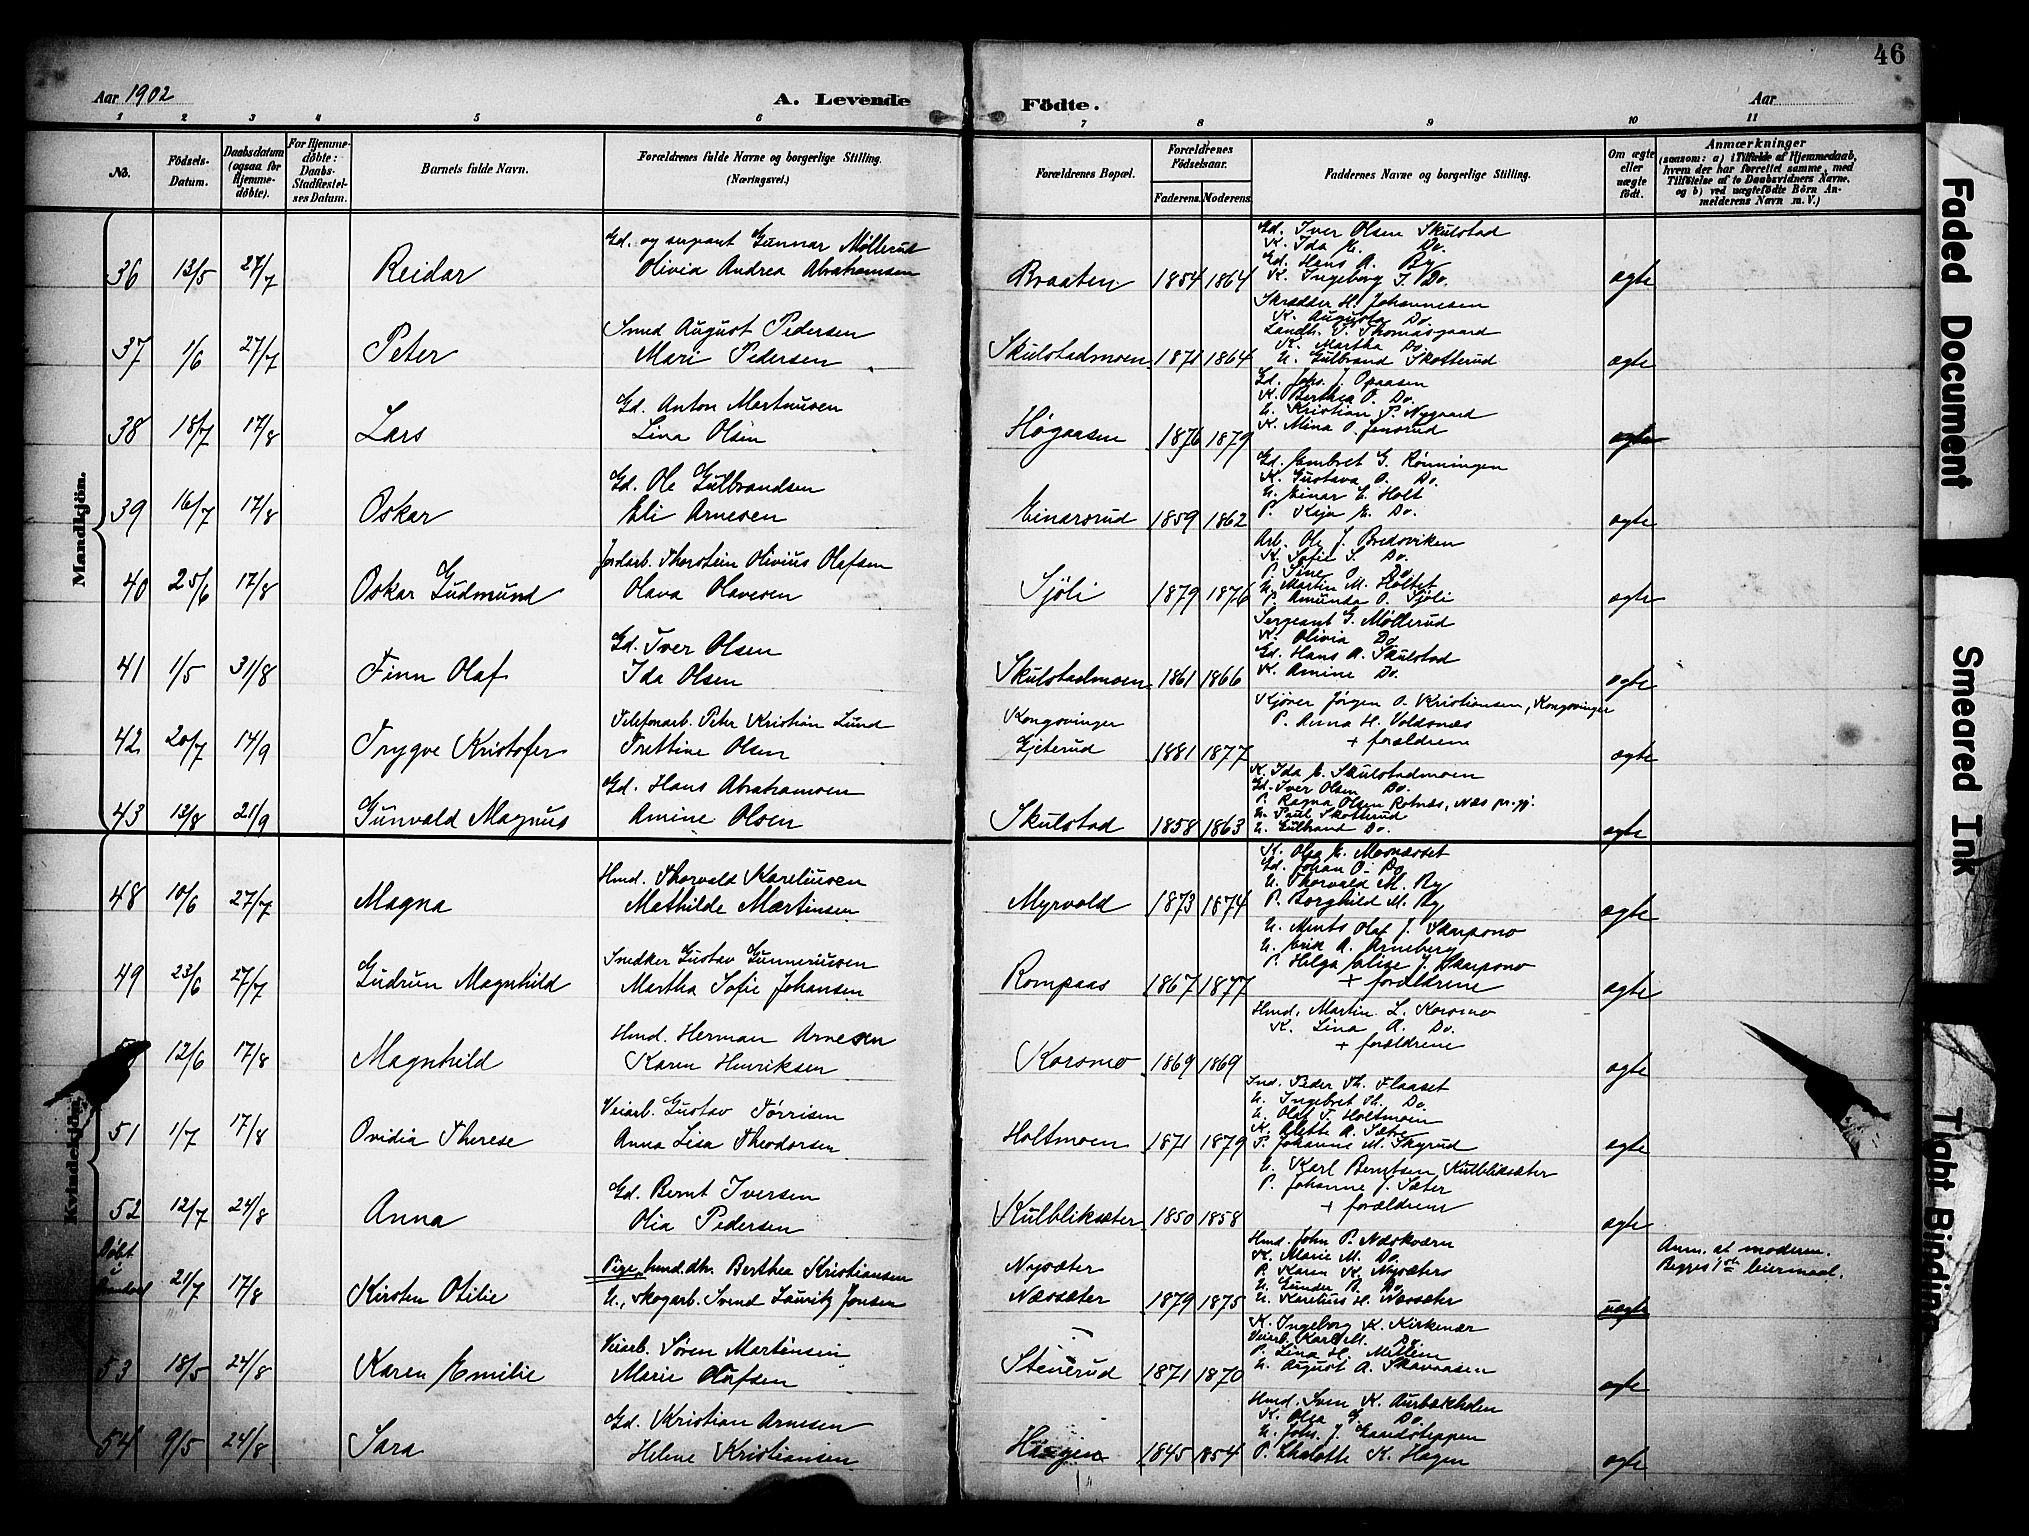 46
Aar 1902
A. Levende Födte.
Aar
1 2 3 4 5 6 7 8 9 10 11
No.
Födsels-Datum.
Daabsdatum (ogsaa for Hjemmedöbte).
For Hjemmedöbte: Daabs-Stadfæstelses Datum.
Barnets fulde Navn.
Forældrenes fulde Navne og borgerlige Stilling. (Næringsvei.)
Forældrenes Bopæl.
Forældrenes Födselsaar.
Faderens. Moderens.
Faddernes Navne og borgerlige Stilling.
Om ægte eller uægte födt.
Anmærkninger
(saasom: a) i Tilfælde af Hjemmedaab, hvem der har forrettet samme, med Tilföielse af to Daabsvidners Navne, og b) ved uægtefödte Börn Anmelderens Navn m. V.)
Mandkjön.
36 13/5 27/7 Reidar
Gd. og sergeant Gunnar Møllerud
Olivia Andrea Abrahamsen
Braaten 1854 1864
Gd. Iver Olsen Skulstad
K. Ida E. Do.
Gd. Hans A. By
K. Ingeborg I. Do.
ægte
37 1/6 27/7 Peter
Smed August Pedersen
Mari Pedersen
Skulstadmoen 1871 1864
Skrædder H. Johannesen
K. Augusta Do.
Landh. T. Thomasgaard
K. Martha Do.
U. Gulbrand Skotterud
ægte
38 18/7 17/8 Lars
Gd. Anton Martinusen
Lina Olsen
Høgaasen 1876 1879
Gd. Johs. J. Opaasen
K. Berthea O. Do.
U. Kristian P. Nygaard
K. Mina O. Jensrud
ægte
39 16/7 17/8 Oskar
Gd. Ole Gulbrandsen
Eli Arnesen
Einarsrud 1859 1862
Gd. Embret G. Rønningen
K. Gustava O. Do.
U. Einar E. Holt
P. Kaja E. Do.
ægte
40 25/6 17/8 Oskar Gudmund
Jordarb. Thorstein Olivius Olafsen
Olava Olavesen
Sjöli 1879 1876
Arb. Ole J. Bredsviken
K. Sofie S. Do.
P. Sine O. Do.
U. Martin M. Holtet
P. Amunda O. Sjöli
ægte
41 1/5 31/8 Finn Olaf
Gd. Iver Olsen
Ida Olsen
Skulstadmoen 1861 1866
Sergeant G. Møllerud
K. Olivia Do.
Gd. Hans A. Skulstad
K. Amine Do.
ægte
42 20/7 14/9 Trygve Kristofer
Telefonarb. Peter Kristian Lund
Trettine Olsen
Kongsvinger
Gjeterud 1881 1877
Kjører Jørgen O. Kristiansen, Kongsvinger
P. Anna H. Voldsnæs
+ forældrene
ægte
43 13/8 21/9 Gunvald Magnus
Gd. Hans Abrahamsen
Amine Olsen
Skulstad 1858 1863
K. Ida E. Skulstadmoen
Gd. Iver Olsen Do.
P. Ragna Olsen Rotnæs, Næs pr.gj.
U. Paul Skotterud
U. Gulbrand Do.
ægte
Kvindekjön.
48 10/6 27/7 Magna
Hmd. Thorvald Kareliusen
Mathilde Martinsen
Myrvold 1873 1874
K. Olea E. Mosnæsset
Gd. Johan O. Do.
U. Thorvald M. By
P. Borghild M. By
ægte
49 23/6 27/7 Gudrun Magnhild
Snedker Gustav Gunneriusen
Martha Sofie Johansen
Rompaas 1867 1877
U. Ments Olaf J. Skarpsno
U. Erik A. Arneberg
P. Helga Jalise J. Skarpsno
+ forældrene
ægte
12/6 17/8 Magnhild
Hmd. Herman Arnesen
Karen Henriksen
Korsmo 1869 1869
Hmd. Martin L. Korsmo
K. Lina A. Do.
+ forældrene
ægte
51 1/7 17/8 Ovidia Therese
Veiarb. Gustav Törrisen
Anna Lisa Theodorsen
Holtmoen 1871 1879
Ind. Peder Th. Flaaset
U. Ingebret Th. Do.
U. Olaf T. Holtmoen
K. Alette A. Sæter
P. Johanne M. Skyrud
ægte
52 12/7 24/8 Anna
Gd. Bernt Iversen
Olia Pedersen
Kulbliksæter 1850 1858
U. Karl Berntsen Kulbliksæter
P. Johanne J. Sæter
+ forældrene
ægte
Døbt i
21/7 17/8 Kirsten Otilie
Pige, hmd.dtr. Berthea Kristiansen
U., skogarb. Svend Lauritz Jonsen
Nysæter
Næssæter 1879 1875
Hmd. John P. Næskværn
K. Marie M. Do.
P. Karen K. Nysæter
U. Gunder B. Do.
U. Karelius H. Næssæter
uægte
Anm. at moderen.
Begges 1ste leiermaal.
53 18/5 24/8 Karen Emilie
Veiarb. Søren Martinsen
Marie Olafsen
Stenerud 1871 1870
K. Ingeborg K. Kirkenær
Veiarb. Karl M. Do.
P. Lina H. Mellem
U. August A. Skavaasen
ægte
54 9/5 24/8 Sara
Gd. Kristian Arnesen
Helene Kristiansen
Haugen 1845 1854
Hmd. Sven K. Aurbækholen
K. Olea G. Do.
U. Johs. J. Sandsteppen
P. Chalotte K. Hagen
ægte
Faded Document
Smeared Ink
Tight Binding